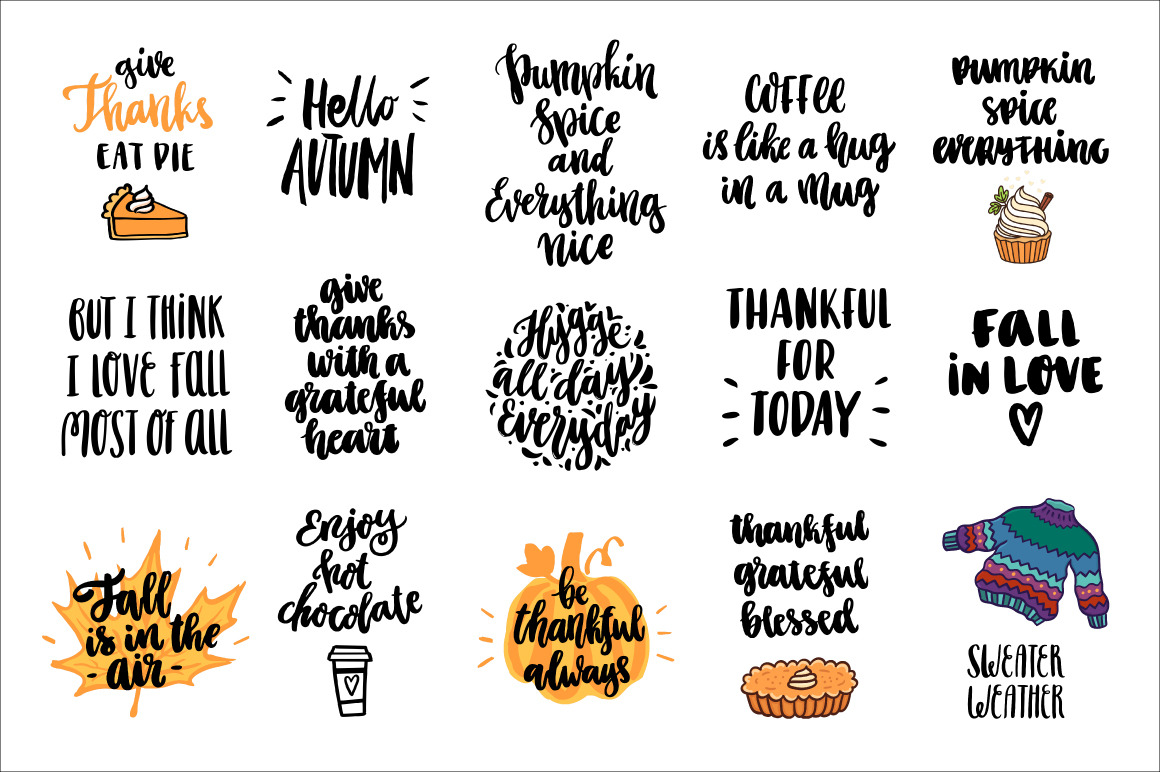 give
Thanks
EAT DIE
Hello
AUTUMN
Pumpkin
Spice
and
Everything
nice
COFFEE
is like a hug
in a mug
PUMPKIN
SPICE
EVERYTHING
BUT I THINK
I LOVE FALL
MOST OF ALL
give
thanks
with a
grateful
heart
Hygge
all day
Everyday
THANKFUL
FOR
TODAY
FALL
IN LOVE
Fall
is in the
- air -
Enjoy
hot
chocolate
be
thankful
always
thankful
grateful
blessed
SWEATER
WEATHER